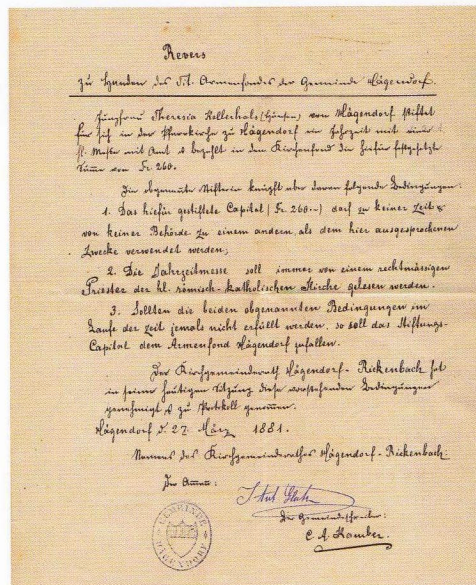 Revers
zu Handen des Tit. Armenfondes der Gemeinde Hägendorf.
Jungfrau Theresia Kellerhals von Hägendorf stiftet
für sich in der Pfarrkirche zu Hägendorf ein Jahrzeit mit einer
hl. Messe mit Amt & bezahlt in den Kirchenfond die hiefür festgesetzte
Summe von Fr. 260.
Die obgenannte Stifterin knüpft aber daran folgende Bedingungen:
1. Das hiefür gestiftete Capital (Fr. 260.-) darf zu keiner Zeit &
von keiner Behörde zu einem andern, als dem hier ausgesprochenen
Zwecke verwendet werden;
2. Die Jahrzeitmesse soll immer von einem rechtmässigen
Priester der hl. römisch-katholischen Kirche gelesen werden.
3. Sollten die beiden obgenannten Bedingungen im
Laufe der Zeit jemals nicht erfüllt werden, so soll das Stiftungs-
Capital dem Armenfond Hägendorf zufallen.
Der Kirchgemeinderath Hägendorf-Rickenbach hat
in seiner heutigen Sitzung diese vorstehenden Bedingungen
genehmigt & zu Protokoll genommen.
Hägendorf d. 27. März 1881.
Namens des Kirchgemeinderathes Hägendorf-Rickenbach:
Der Amman:
Der Gemeindeschreiber:
C. A. Kamber.
GEMEINDE
HÄGENDORF